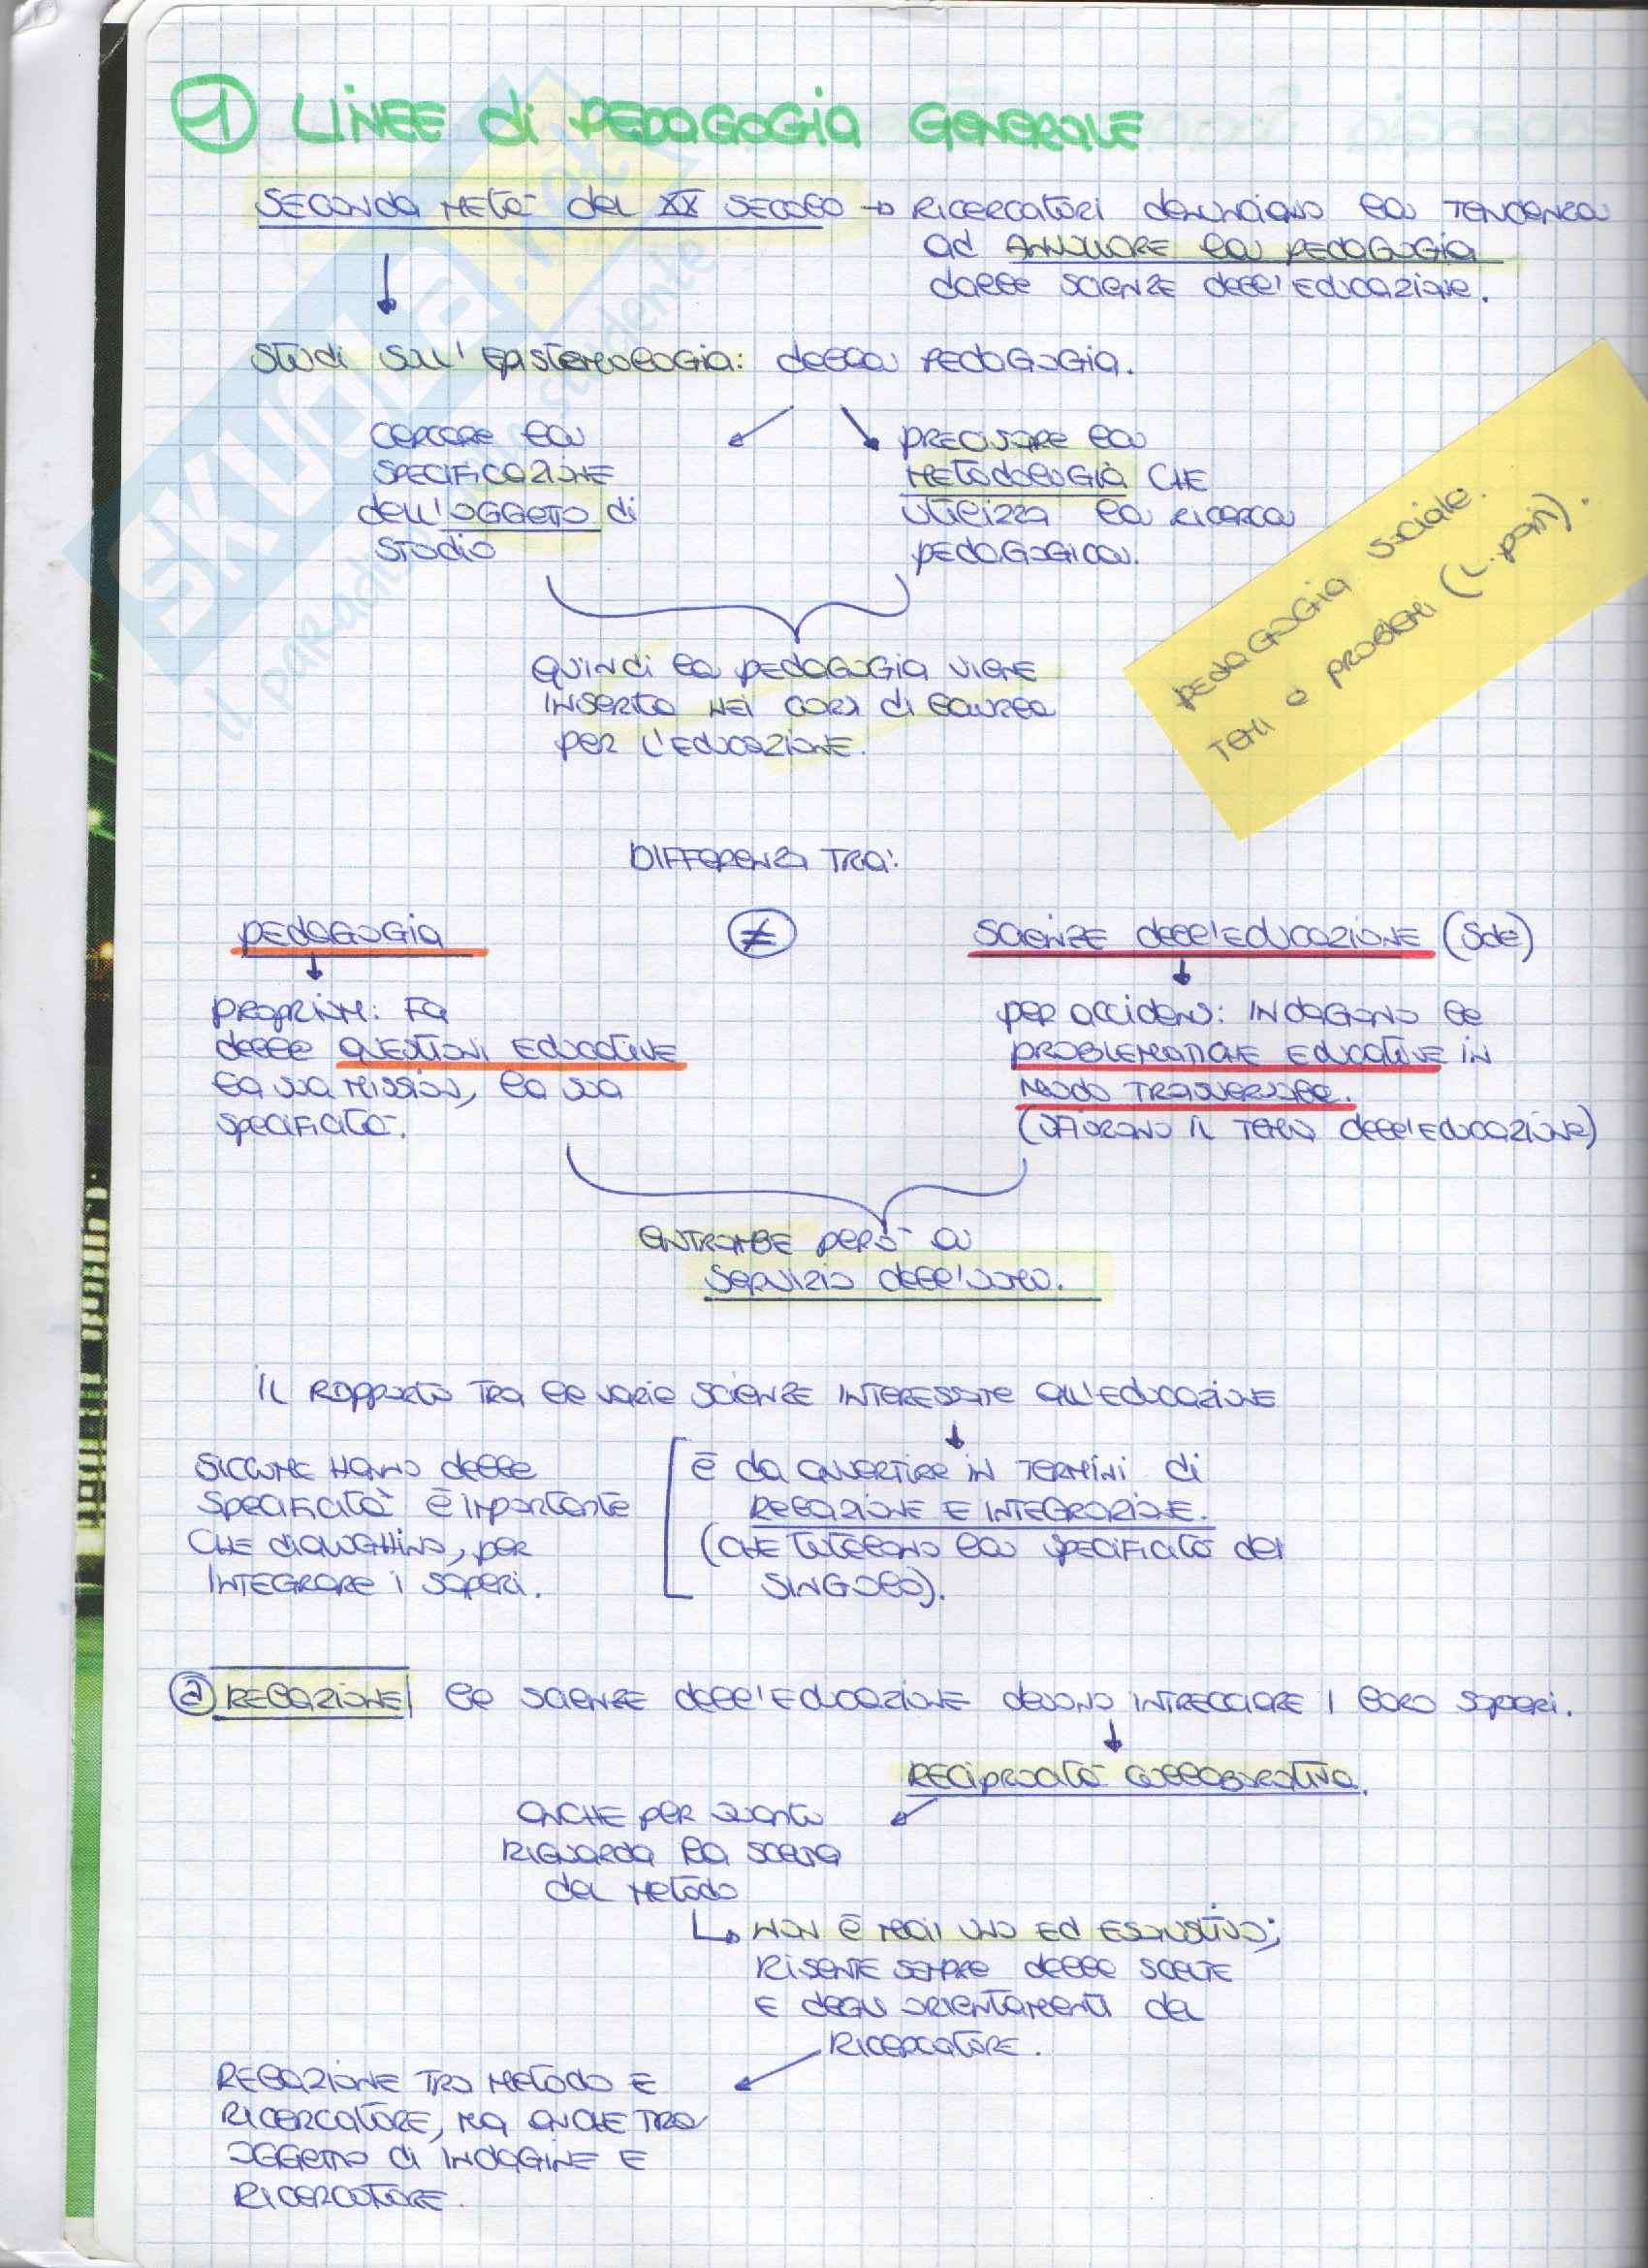 ① LINEE di PEDAGOGIA GENERALE
SECONDA METÀ del XX SECOLO → RICERCATORI denunciano la TENDENZA
ad ANNULLARE la PEDAGOGIA
dalle SCIENZE dell'EDUCAZIONE.
STUDI SULL'EPISTEMOLOGIA: della PEDAGOGIA.
CERCARE la
SPECIFICAZIONE
dell'OGGETTO di
STUDIO
PRECISARE la
METODOLOGIA CHE
UTILIZZA la RICERCA
PEDAGOGICA.
QUINDI la PEDAGOGIA VIENE
INSERITA NEI CORSI di LAUREA
PER L'EDUCAZIONE.
PEDAGOGIA SOCIALE.
TEMI e PROBLEMI (L. pati).
DIFFERENZA TRA:
PEDAGOGIA ≠ SCIENZE dell'EDUCAZIONE (SdE)
PROPRIUM: FA
delle QUESTIONI EDUCATIVE
la sua MISSION, la sua
SPECIFICITÀ.
PER ACCIDENS: INDAGANO le
PROBLEMATICHE EDUCATIVE IN
MODO TRASVERSALE.
(SFIORANO IL TEMA dell'EDUCAZIONE)
ENTRAMBE però a
SERVIZIO dell'UOMO.
IL RAPPORTO TRA le VARIE SCIENZE INTERESSATE ALL'EDUCAZIONE
SICCOME HANNO delle
SPECIFICITÀ È IMPORTANTE
CHE DIALOGHINO, PER
INTEGRARE I SAPERI.
È DA AVVERTIRE IN TERMINI di
RELAZIONE E INTEGRAZIONE.
(CHE TUTELANO la SPECIFICITÀ del
SINGOLO).
ⓐ RELAZIONE le SCIENZE dell'EDUCAZIONE devono INTRECCIARE I loro SAPERI.
RECIPROCITÀ COLLABORATIVA.
ANCHE PER QUANTO
RIGUARDA la SCELTA
del METODO
↳ NON È MAI UNO ED ESAUSTIVO;
RISENTE SEMPRE delle SCELTE
E degli ORIENTAMENTI del
RICERCATORE.
RELAZIONE TRA METODO E
RICERCATORE, MA ANCHE TRA
OGGETTO di INDAGINE E
RICERCATORE.
SKUOLA.net
il paradiso dello studente